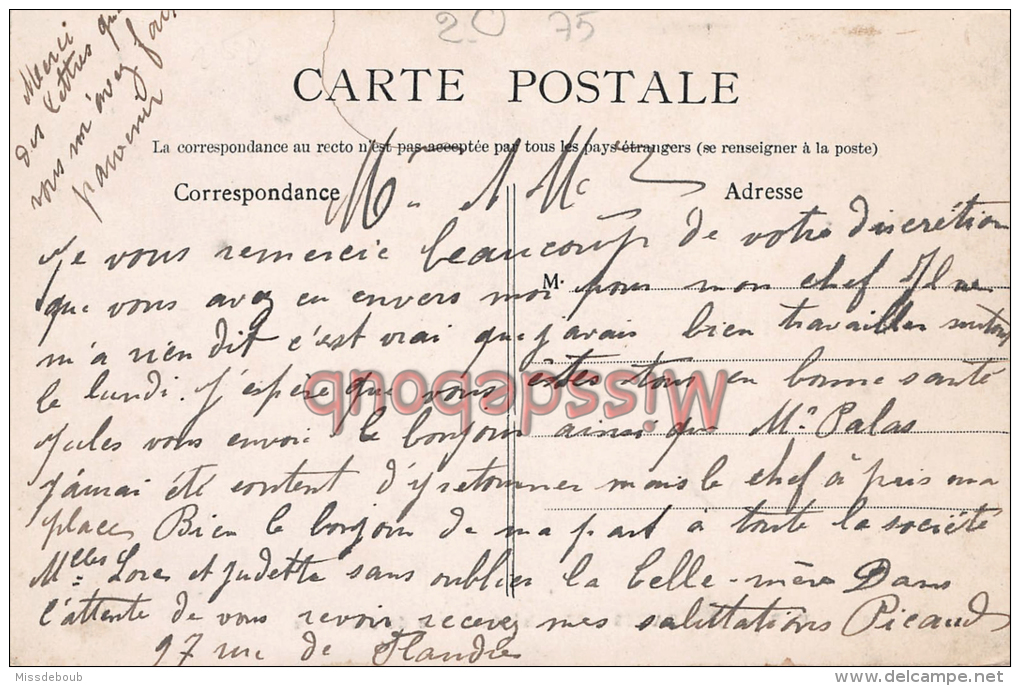 20 75
Merci
des Lettres que
vous m'avez fait
parvenir
CARTE POSTALE
La correspondance au recto n'est pas acceptée par tous les pays étrangers (se renseigner à la poste)
Correspondance
Adresse
Mr
M.
Je vous remercie beaucoup de votre discretion
que vous avez eu envers moi pour mon chef Il ne
m'a rien dit c'est vrai que j'avais bien travailler surtout
le lundi. J'espère que vous êtes tous en bonne santé
Jules vous envoi le bonjour ainsi que Mr Palas
J'aurai été content d'y retourner mais le chef à pris ma
place Bien le bonjour de ma part à toute la société
Melles Lore et Judette sans oublier la belle-mère Dans
l'attente de vous revoir recevez mes salutations Picaud
97 rue de Flandre
Missdeboub
Missdeboub
www.delcampe.net